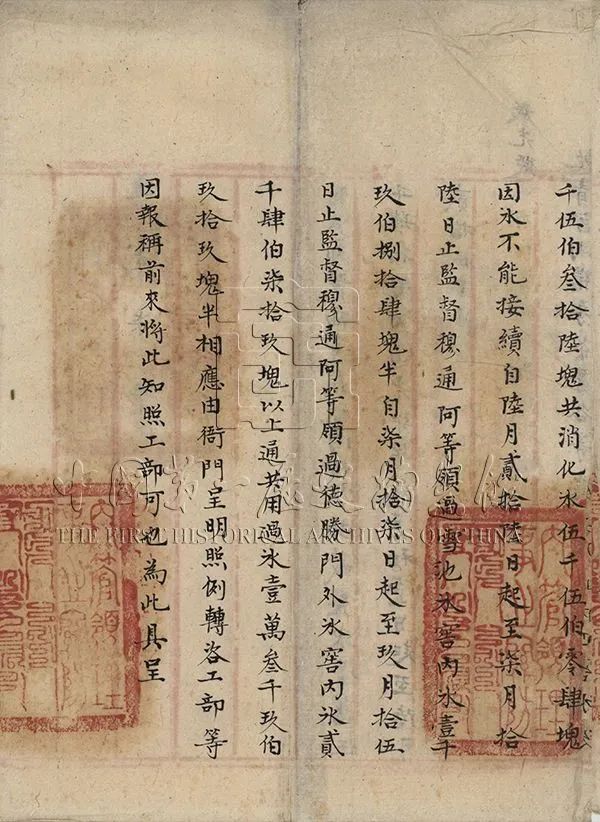 千伍伯叁拾陸塊共消化氷伍千伍伯零肆塊
因氷不能接續自陸月貳拾陸日起至柒月拾
陸日止監督穆通阿等領過雪池氷窖内氷壹千
玖伯捌拾肆塊半自柒月拾柒日起至玖月拾伍
日止監督穆通阿等領過徳勝門外氷窖内氷貳
千肆伯柒拾玖塊以上通共用過氷壹萬叁千玖伯
玖拾玖塊半相應由衙門呈明照例轉咨工部等
因報稱前來將此知照工部可也為此具呈
中国第一历史档案馆
THE FIRST HISTORICAL ARCHIVES OF CHINA